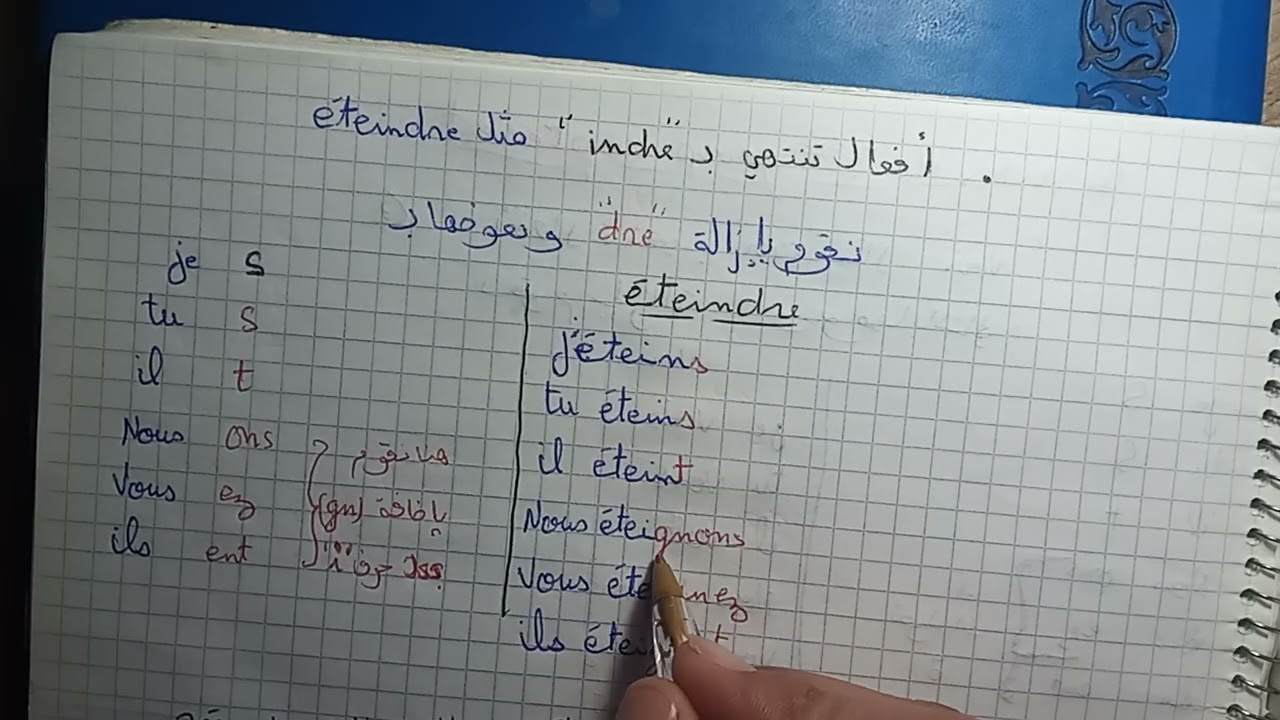 . أفعال تنتهي بـ "indre" مثل éteindre
نقوم بإزالة "dre" ونعوضها بـ
je s
tu s
il t
Nous ons
Vous ez
ils ent
هنا نقوم
بإضافة (gn)
بدلا حرف
éteindre
j'éteins
tu éteins
il éteint
Nous éteignons
Vous éte nez
ils étei t